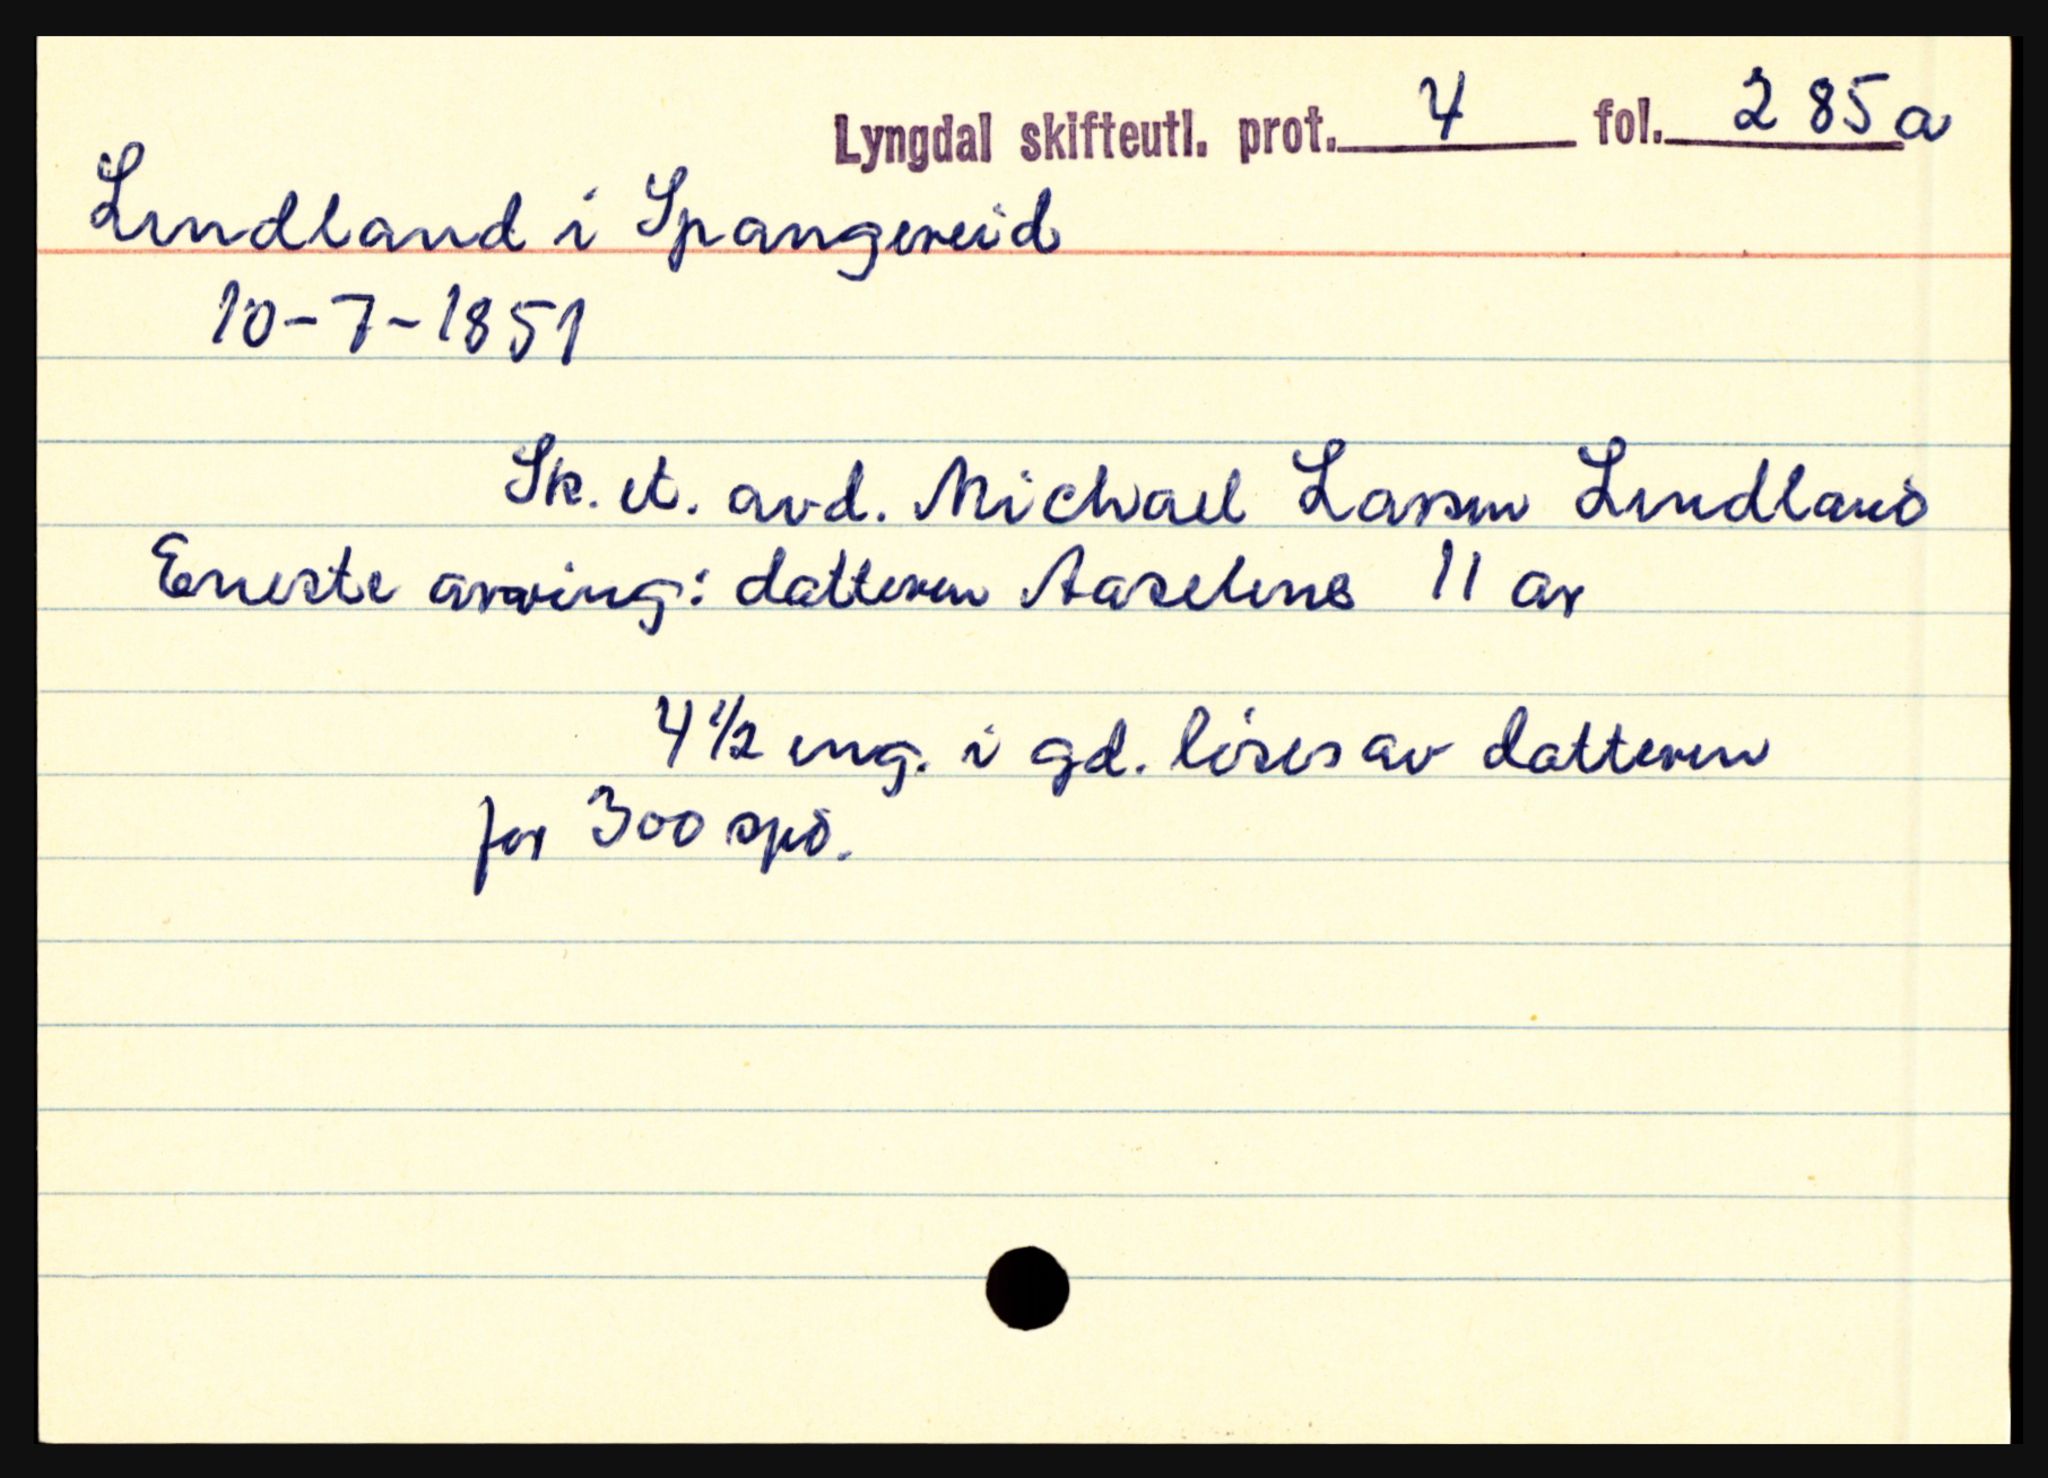 Lyngdal skifteutl. prot. 4 fol. 285a
Lindland i Spangereid
10-7-1851
Sk. et. avd. Michael Larsen Lindland
Eneste arving: datteren Aaselene 11 ar
4 1/2 eng. i gd. löses av datteren
for 300 spd.